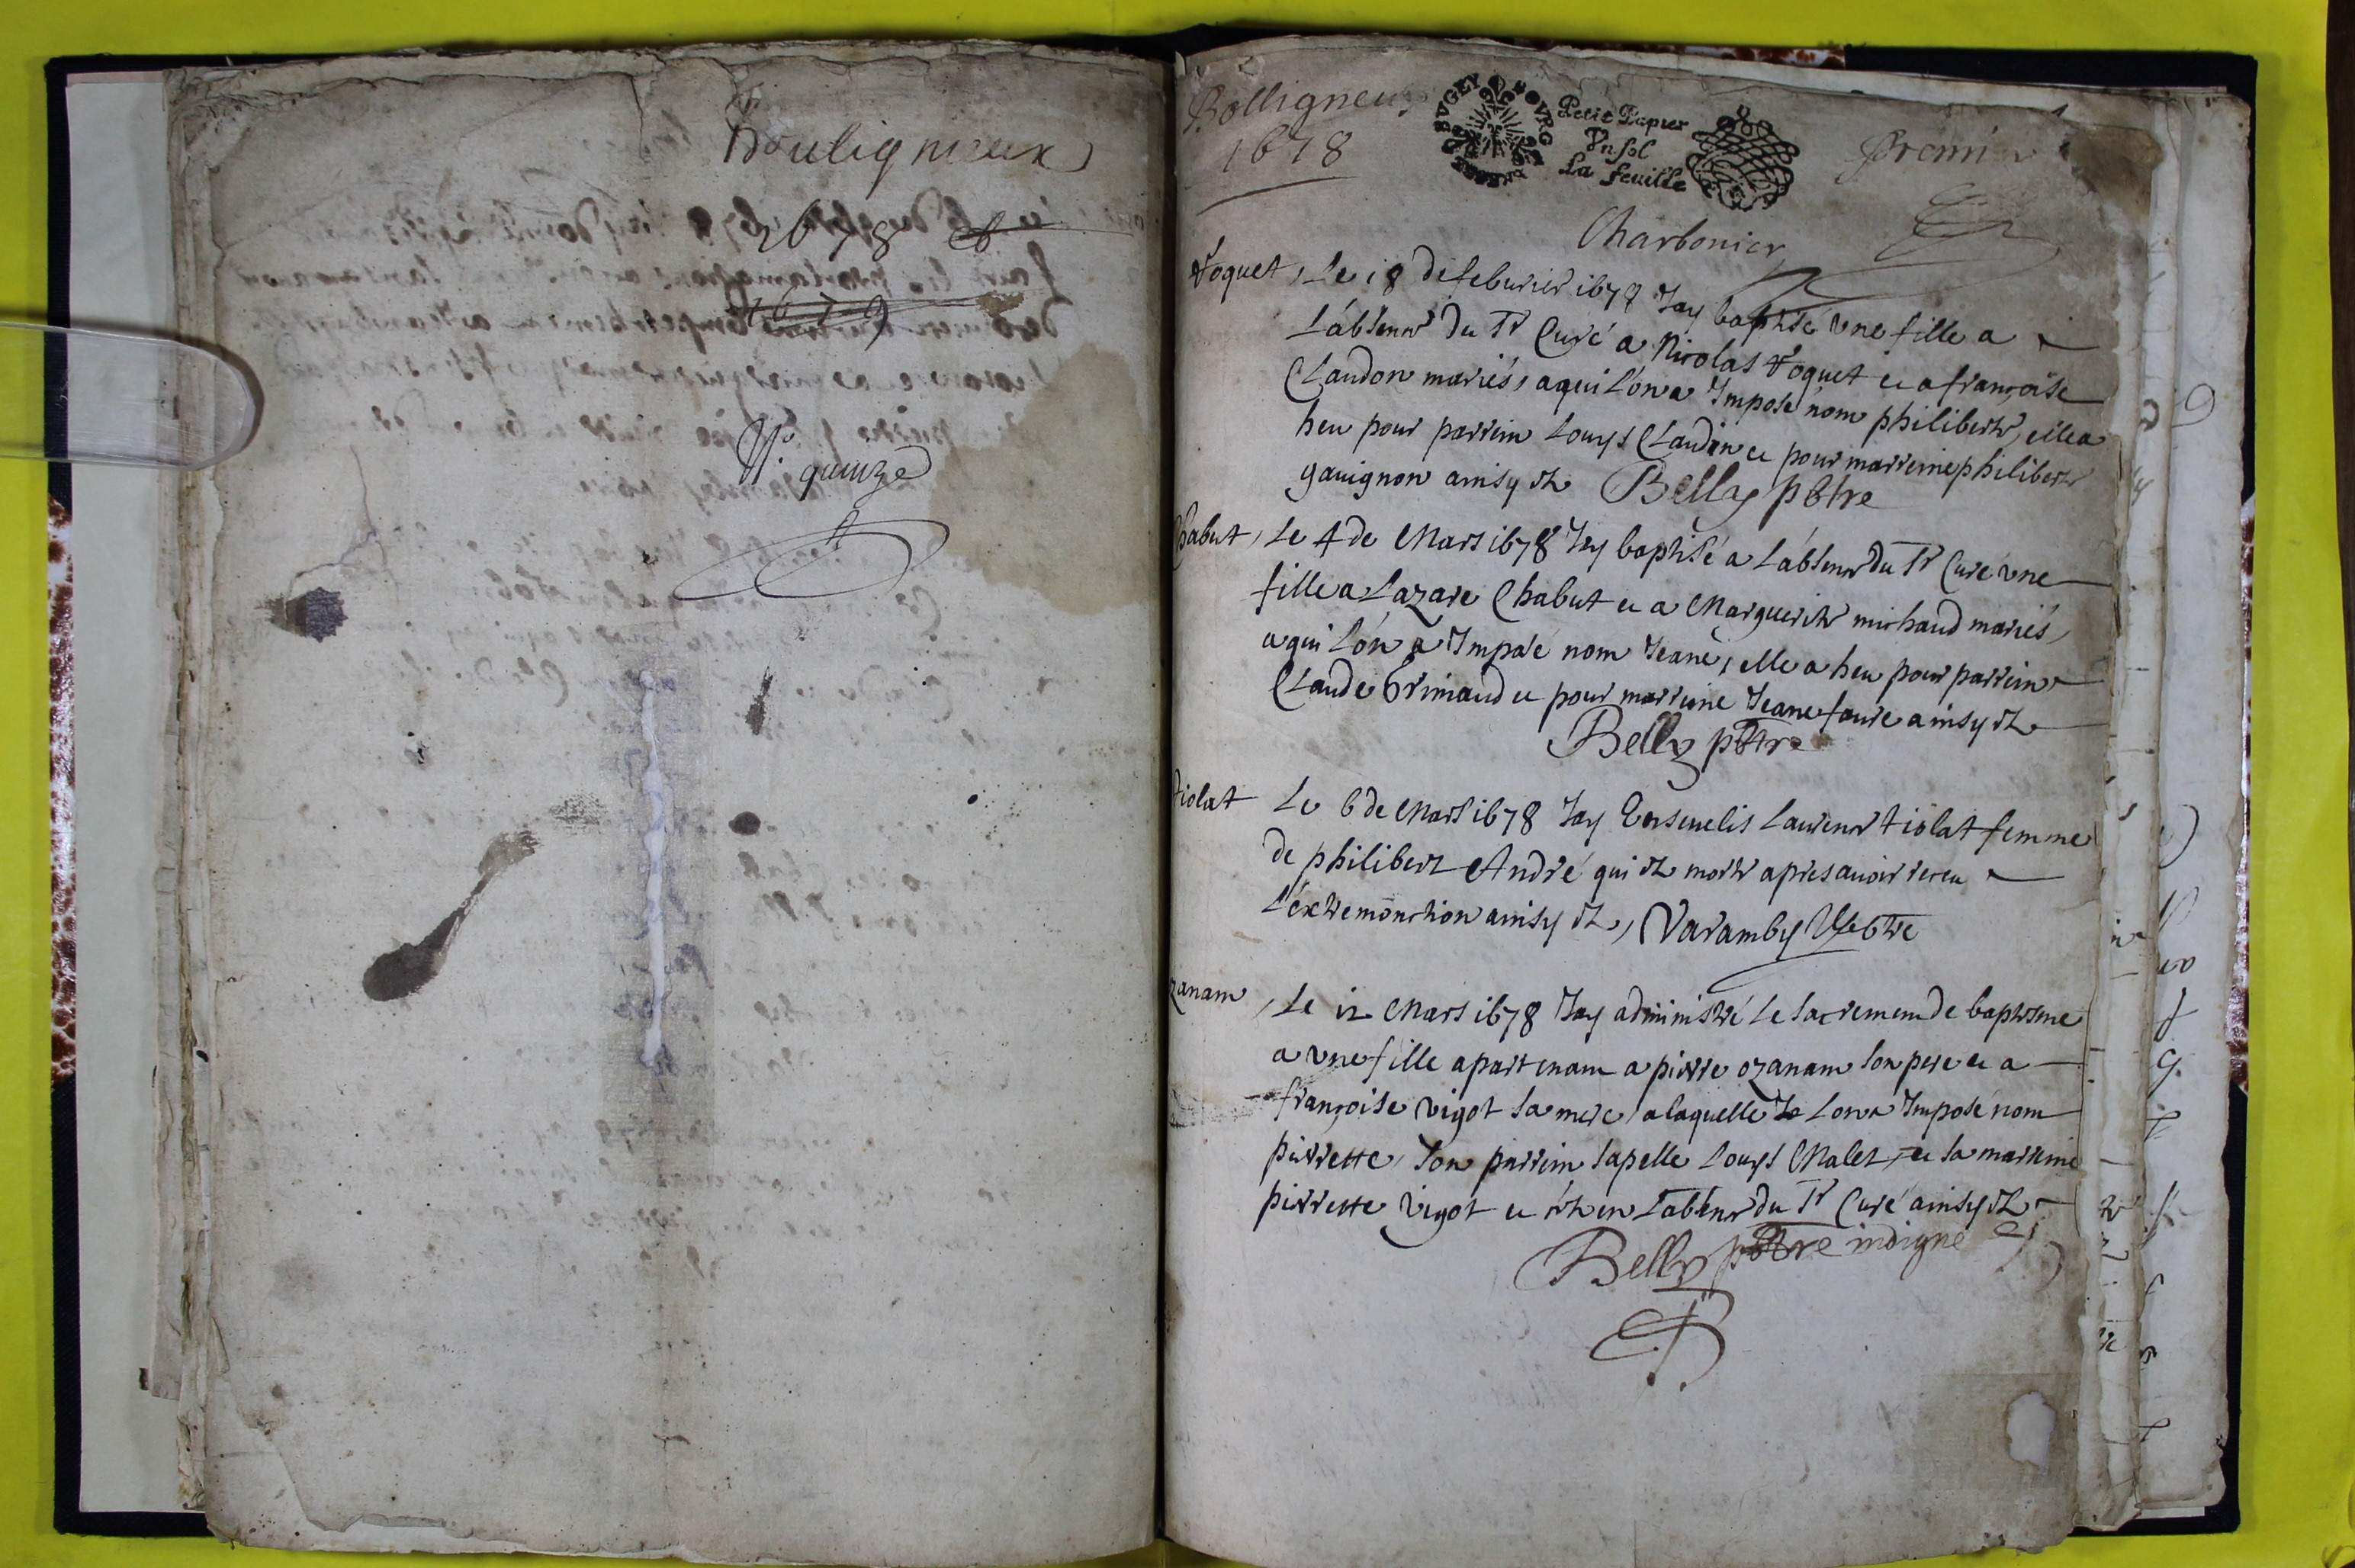 Bouligneux
1678 &
1679
N.° quinze
Bolligneux
1678
BVGEY BOVRG
Petit Papier
Vn sol
La feuille
premier
Charbonier
Voquet, Le 18 de feburier 1678 Jay baptisé vne fille a
L'absence du Sr Curé a Nicolas Voquet et a françoise
Claudon mariés, a qui l'on a Imposé nom philiberte, elle a
heu pour parrein Louys Claudin et pour marreine philiberte
gauignon ainsy est Belly pbtre
Chabut, Le 4 de Mars 1678 Jay baptisé a L'absence du Sr Curé vne
fille a Lazare Chabut et a Marguerite michaud mariés,
a qui l'on a Imposé nom Jeane, elle a heu pour parrein
Claude Grimaud et pour marreine Jeane faure ainsy est
Belly pbtre
tiolat Le 6 de Mars 1678 Jay Enseuelis Laurence tiolat femme
de philibert André qui est morte apres auoir receu
l'extremonction ainsy est, Varamby Pbtre
zanam, Le 12 Mars 1678 Jay administré Le sacrement de baptesme
a vne fille apartenant a pierre ozanam son pere et a
françoise vigot sa mere, a laquelle Je L'on a Imposé nom
pierrette, son parrein sapelle Louys Malet, et sa marreine
pierrette vigot et est en L'absence du Sr Curé ainsy est
Belly pbtre indigne